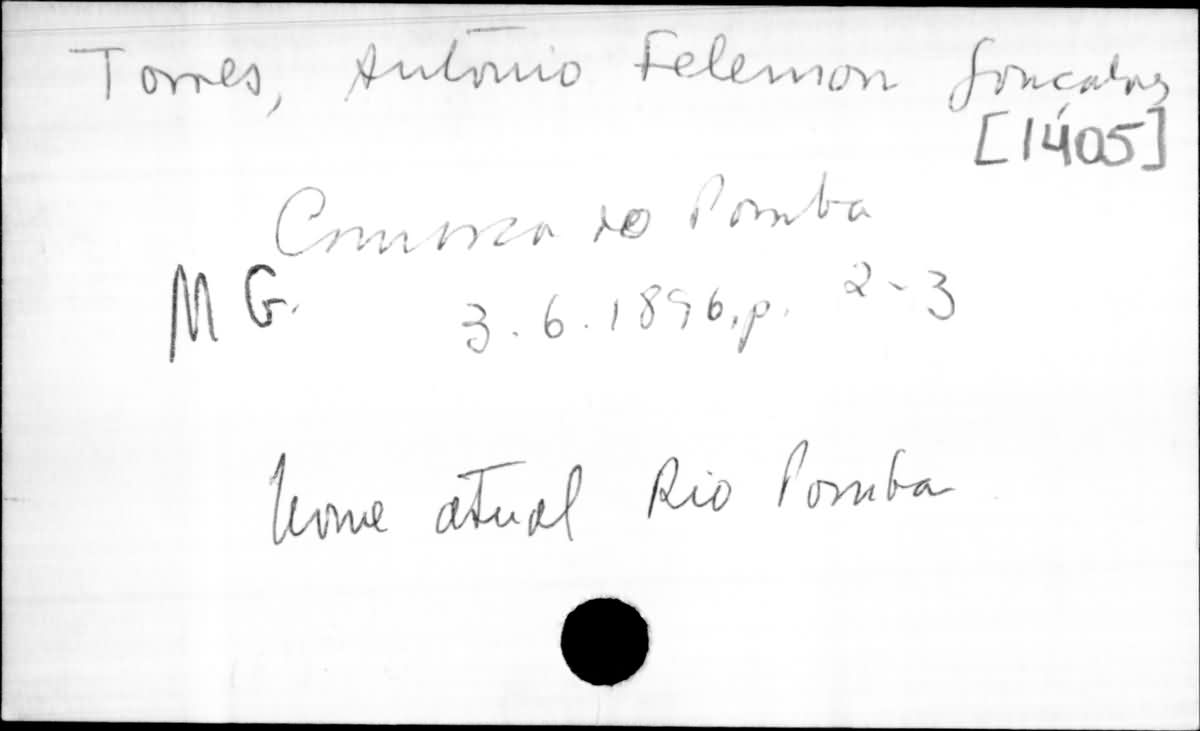 Torres, Antônio Felemon Gonçalves
[1405]
Comarca do Pomba
M G. 3.6.1896, p. 2-3
Nome atual Rio Pomba